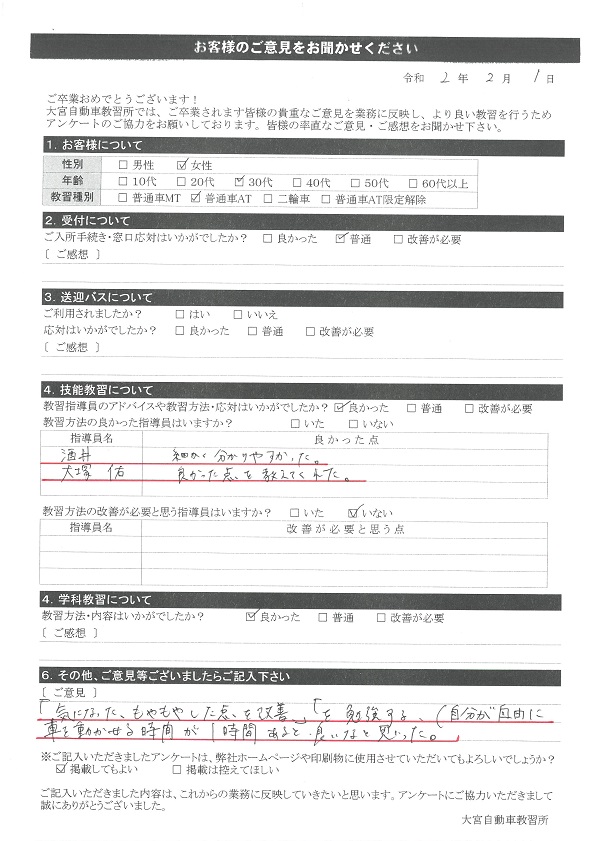 お客様のご意見をお聞かせください
令和 2 年 2 月 1 日
ご卒業おめでとうございます！
大宮自動車教習所では、ご卒業されます皆様の貴重なご意見を業務に反映し、より良い教習を行うため
アンケートのご協力をお願いしております。皆様の率直なご意見・ご感想をお聞かせ下さい。
1. お客様について
性別 □ 男性 ☑ 女性
年齢 □ 10代 □ 20代 ☑ 30代 □ 40代 □ 50代 □ 60代以上
教習種別 □ 普通車MT ☑ 普通車AT □ 二輪車 □ 普通車AT限定解除
2. 受付について
ご入所手続き・窓口応対はいかがでしたか？ □ 良かった ☑ 普通 □ 改善が必要
〔 ご感想 〕
3. 送迎バスについて
ご利用されましたか？ □ はい □ いいえ
応対はいかがでしたか？ □ 良かった □ 普通 □ 改善が必要
〔 ご感想 〕
4. 技能教習について
教習指導員のアドバイスや教習方法・応対はいかがでしたか？ ☑ 良かった □ 普通 □ 改善が必要
教習方法の良かった指導員はいますか？ □ いた □ いない
指導員名 良かった点
酒井 細かく分かりやすかった。
大塚 佑 良かった点を教えてくれた。
教習方法の改善が必要と思う指導員はいますか？ □ いた ☑ いない
指導員名 改善が必要と思う点
4. 学科教習について
教習方法・内容はいかがでしたか？ ☑ 良かった □ 普通 □ 改善が必要
〔 ご感想 〕
6. その他、ご意見等ございましたらご記入下さい
〔 ご意見 〕
「気になった、もやもやした点を改善」「を勉強する、(自分が自由に
車を動かせる時間が1時間あると良いなと思った。
※ご記入いただきましたアンケートは、弊社ホームページや印刷物に使用させていただいてもよろしいでしょうか？
☑ 掲載してもよい □ 掲載は控えてほしい
ご記入いただきました内容は、これからの業務に反映していきたいと思います。アンケートにご協力いただきまして
誠にありがとうございました。
大宮自動車教習所